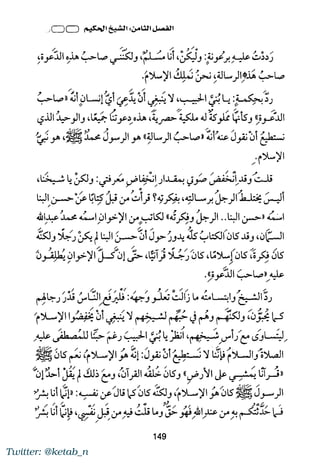 الفصل الثامن: الشيخ الحكيم
رددتُ عليه برعونةٍ: وليكُنْ، أنا مسلمٌ، ولكنني صاحبُ هذه الدعوة،
صاحبُ هذه الرسالة، نحنُ نملكُ الإسلامَ.
ردَّ بحكمةٍ: يا بُنيَّ الحبيب، لا ينبغي أنْ يدَّعيَ أيُّ إنسانٍ أنَّهُ «صاحبُ
الدعوة» وكأنها مملوكةٌ له ملكيةً حصريةً، هذه دعوتُنا جميعًا، والوحيدُ الذي
نستطيعُ أنْ نقولَ عنه أنَّهُ «صاحبُ الرسالة» هو الرسولُ محمدٌ ﷺ، هو نبيُّ
الإسلام.
قلتُ وقد انخفضَ صوتي بمقدار انخفاضِ معرفتي: ولكنْ يا شيخَنا،
أليسَ يختلطُ الرجلُ برسالتِه، بفكرتِه؟ قرأتُ من قبلُ كتابًا عنْ حسن البنا
اسمُه «حسن البنا.. الرجلُ والفكرةُ» لكاتبٍ من الإخوانِ اسمُه محمد عبدالله
السمَّان، وقد كانَ الكتابُ كلُّه يدورُ حولَ أنَّ حسنَ البنا لم يكنْ رجلًا ولكنَّه
كانَ فكرةً، كانَ إسلامًا، كانَ رجُلًا قرآنيًا، حتَّى إنَّ كلَّ الإخوانِ يُطلِقُونَ
عليه «صاحبَ الدعوة».
ردَّ الشيخُ وابتسامتُه ما زالتْ تعلُو وجهَه: فليرفَعِ الناسُ قَدْرَ رجالِهم
كما يُحبُّونَ، ولكنَّهم وهُم في حُبِّهم لشيخِهم لا ينبغي أنْ يخفِضُوا الإسلامَ
ليتساوَى معَ رأسِ شيخِهم، انظرْ يا بُنيَّ الحبيبَ رغمَ حبِّنا للمصطفَى عليه
الصلاةُ والسلامُ فإنَّنا لا نستطيعُ أنْ نقولَ: إنَّهُ هوَ الإسلامُ، نعَم كانَ ﷺ
«قُرآنًا يمشي على الأرضِ» وكانَ خُلقُه القرآنُ، ومعَ ذلكَ لمْ يقُلْ أحدٌ إنَّ
الرسولَ ﷺ كانَ هُوَ الإسلامَ، ولكنَّه كانَ كما قالَ عن نفسِه: «إنَّما أنا بشرٌ
فما حَدَّثتُكُم به من عندِ اللهِ فهُو حَقٌّ وما قلتُ فيه من قِبَلِ نفْسِي، فإنَّما أنا بَشَرٌ
149
Twitter: @ketab_n